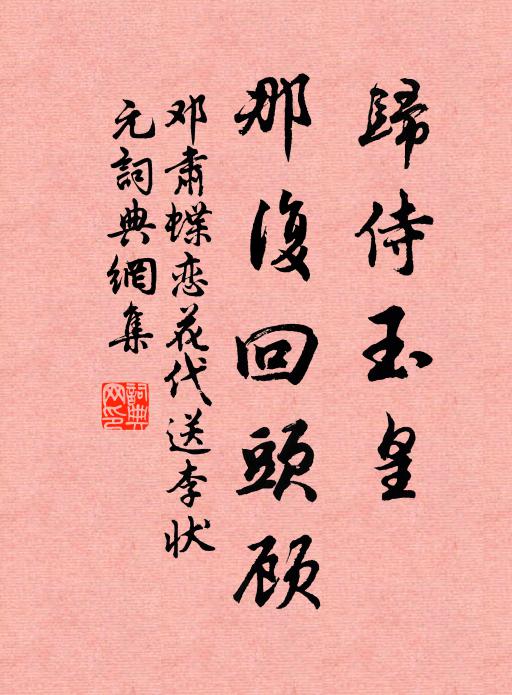 歸侍玉皇
那復回頭顧
邓肃蝶恋花代送李状
元詞典網集
詞典网印